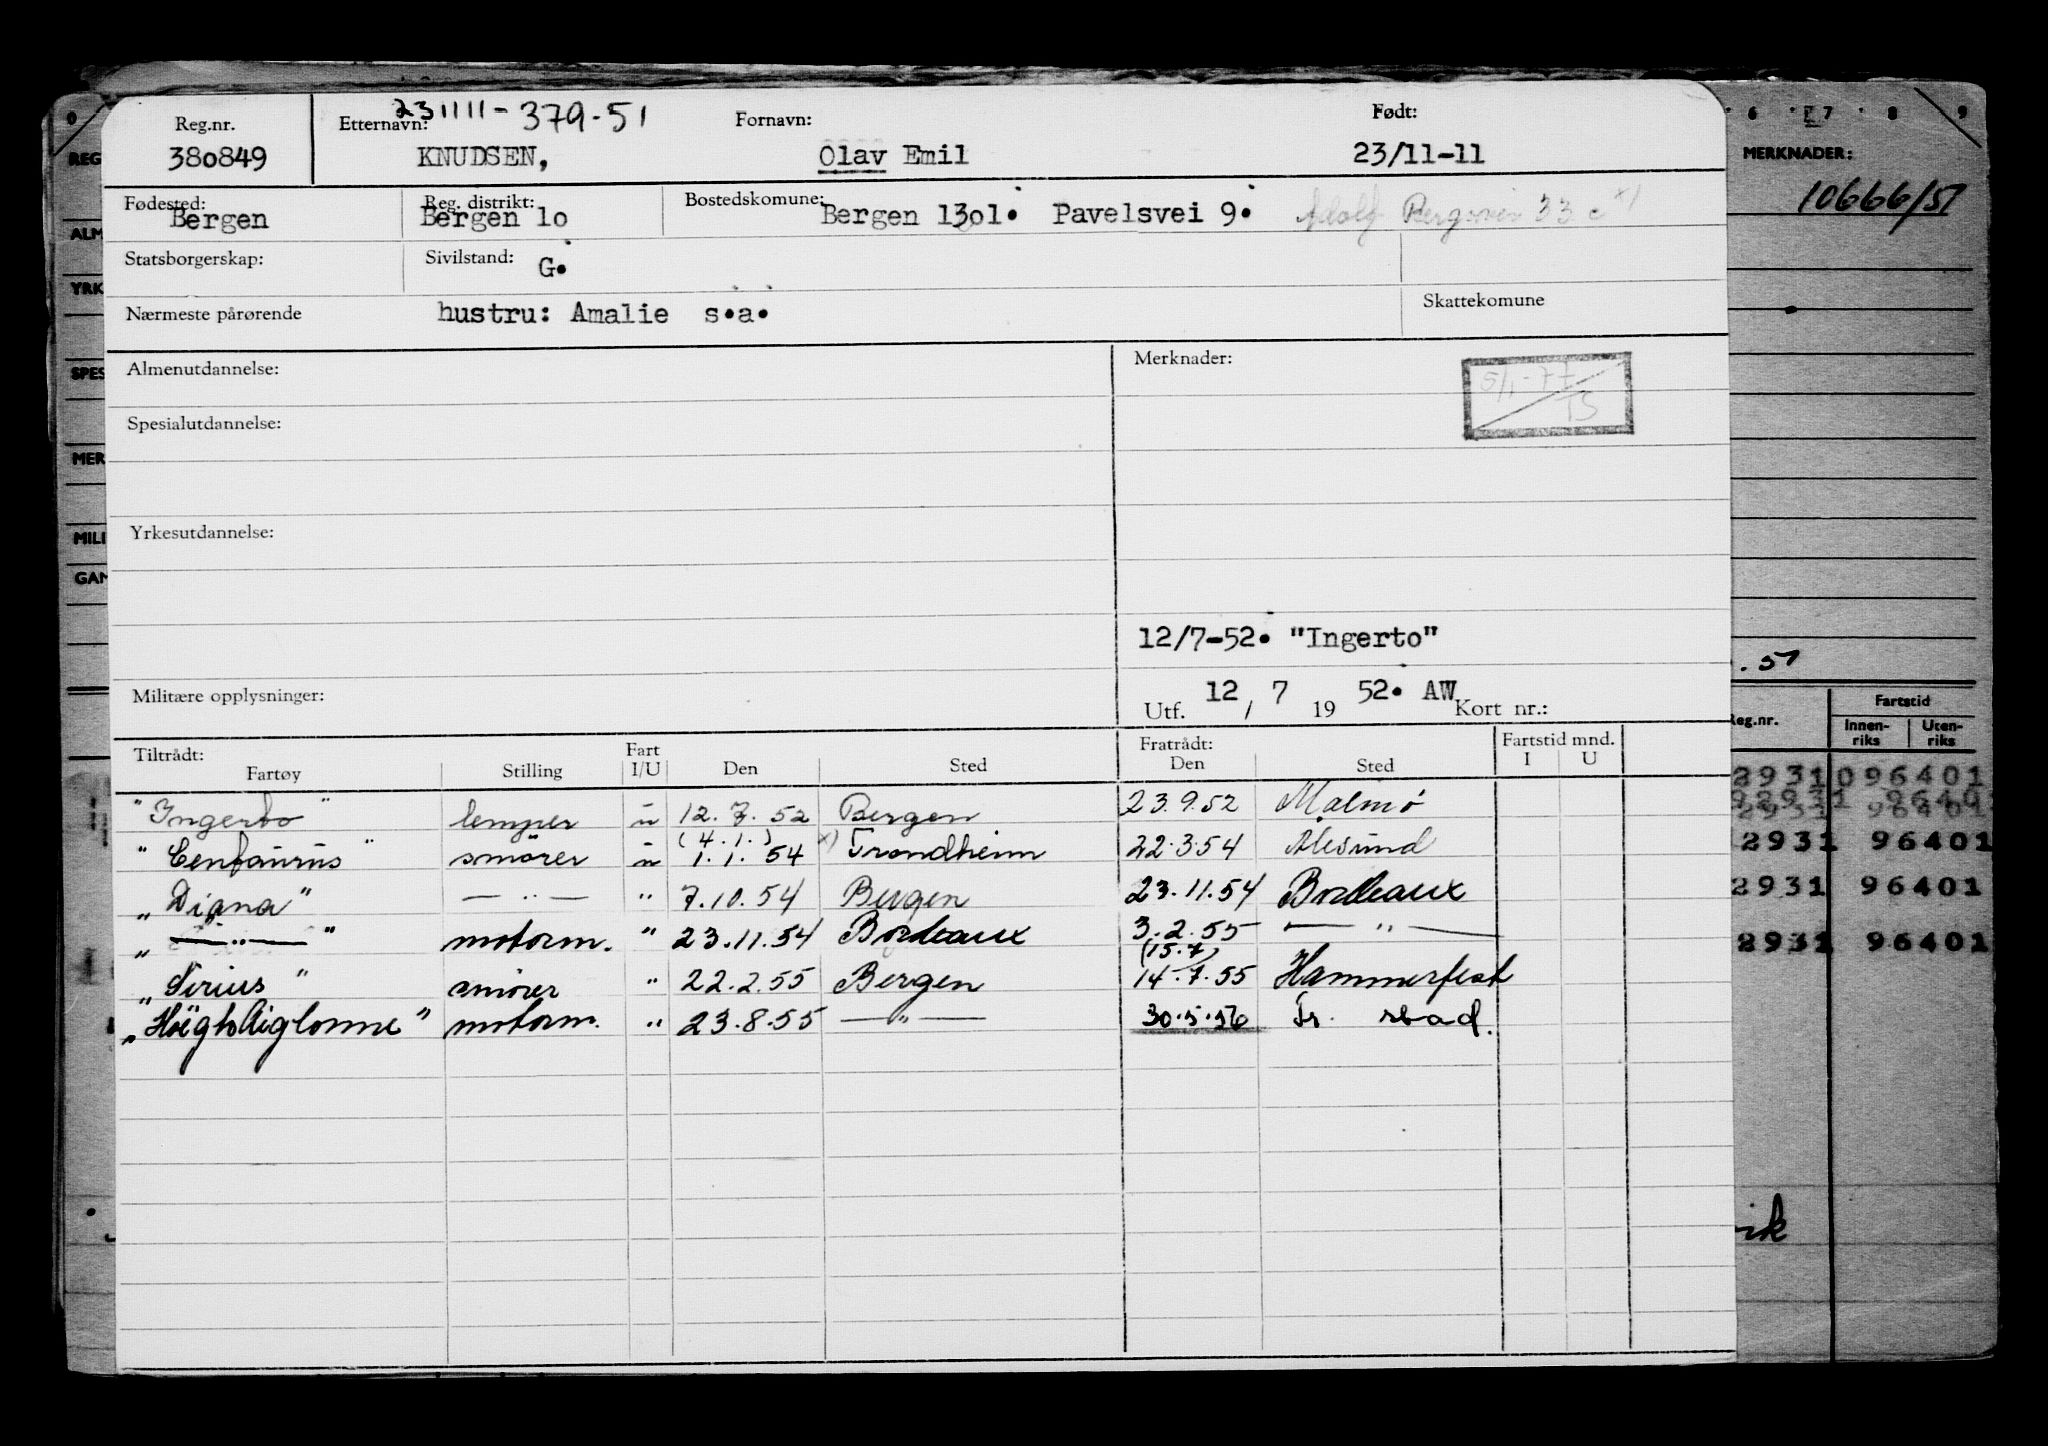 231111-379-51
Reg.nr. Etternavn: Fornavn: Født:
380849 KNUDSEN, Olav Emil 23/11-11
Fødested: Reg. distrikt: Bostedskomune:
Bergen Bergen 10 Bergen 1301. Pavelsvei 9. Adolf Bergsvei 33 c x)
Statsborgerskap: Sivilstand: G.
Nærmeste pårørende hustru: Amalie s.a. Skattekomune
Almenutdannelse: Merknader:
5/1-77
TS
Spesialutdannelse:
Yrkesutdannelse:
12/7-52. "Ingerto"
Militære opplysninger: Utf. 12 / 7 19 52. AW Kort nr.:
Tiltrådt: Fratrådt: Fartstid mnd.
Fartøy Stilling Fart I/U Den Sted Den Sted I U
"Ingerto" lemper u 12.7.52 Bergen 23.9.52 Malmø
"Centaurus" smører u (4.1.) 1.1.54 x) Trondheim 22.3.54 Ålesund
"Diana" — " — " 7.10.54 Bergen 23.11.54 Bordeaux
" — " — " motorm. " 23.11.54 Bordeaux 3.2.55 — " —
"Sirius" smører " 22.2.55 Bergen (15.7) 14.7.55 Hammerfest
"Høegh Aiglonne" motorm. " 23.8.55 — " — 30.5.56 Fr. stad.
0 6 7 8 9
REG
ALM
YRK
SPES
MER
MILI
GAM
MERKNADER:
10666/51
. 51
Reg.nr. Fartstid
Innen-riks Uten-riks
2931 096401
2931 96401
2931 96401
2931 96401
vik